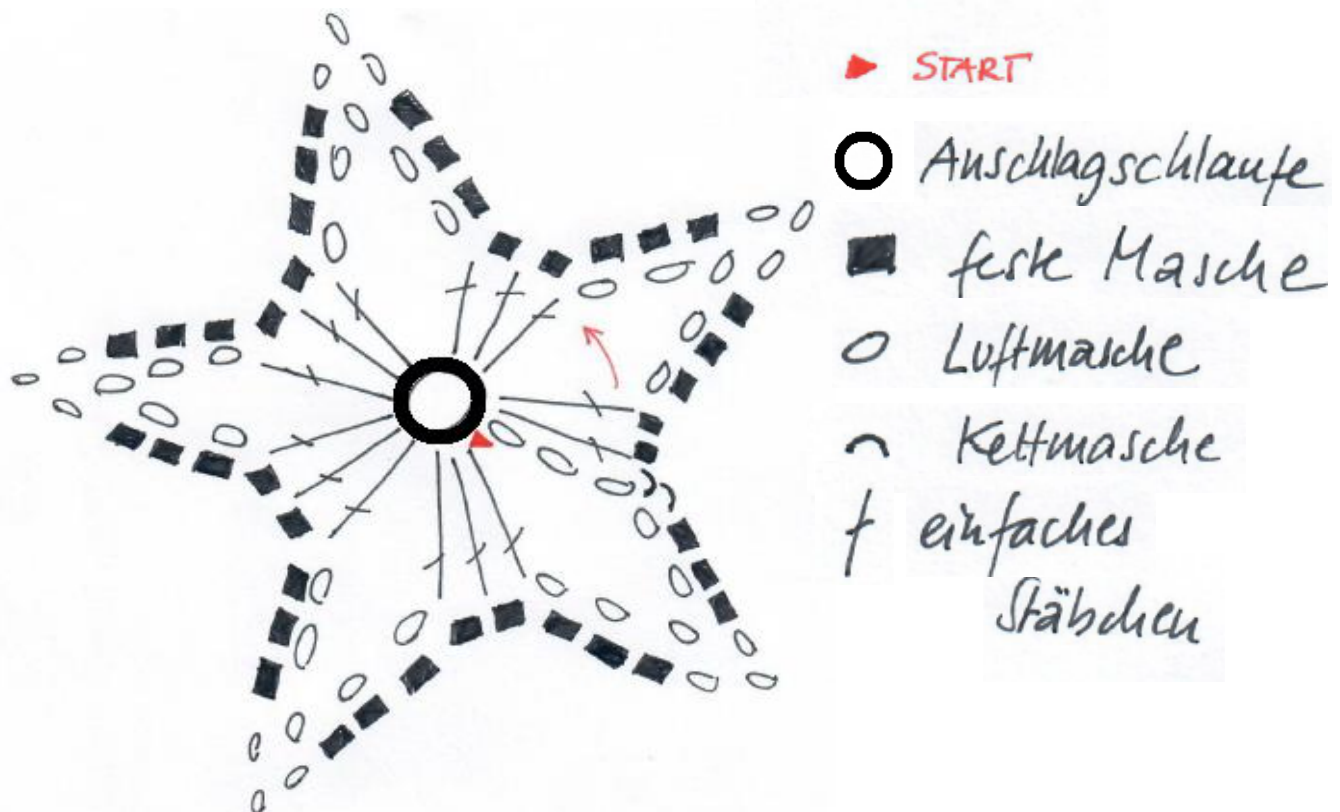 START
Anschlagschlaufe
feste Masche
Luftmasche
Kettmasche
einfaches
Stäbchen